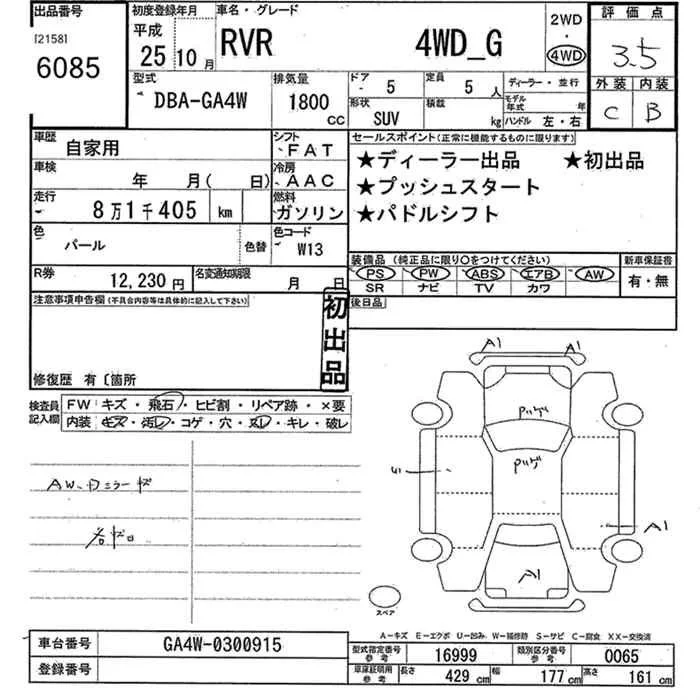 出品番号
[2158]
6085
初度登録年月
平成
25 10 月
車名・グレード
RVR 4WD_G
2WD
・
4WD
評価点
3.5
外装 内装
C B
型式
DBA-GA4W
排気量
1800 CC
ドア
- 5
定員
5 人
ディーラー・並行
形状
SUV
積載
kg
モデル年式 年
ハンドル 左・右
車歴
自家用
シフト
FAT
車検
年 月( 日)
冷房
AAC
走行
8 万 1 千 405 km
燃料
ガソリン
色
パール
色替
色コード
W13
R券
12,230 円
名変通知期限
月 日
セールスポイント(正常に機能するものに限ります)
★ディーラー出品 ★初出品
★プッシュスタート
★パドルシフト
装備品 (純正品に限り〇をつけてください)
新車保証書
PS PW ABS エアB AW
SR ナビ TV カワ
有・無
後日品
注意事項申告欄(不具合内容等は具体的に記入して下さい)
初出品
修復歴 有〔箇所
検査員記入欄
FW キズ・飛石・ヒビ割・リペア跡・×要
内装 キズ・汚レ・コゲ・穴・ヌレ・キレ・破レ
A1 A1
A1
A1
スペア
A-キズ E-エクボ U-凹み W-補修跡 S-サビ C-腐食 XX-交換済
車台番号
GA4W-0300915
登録番号
型式指定番号 参考
16999
類別区分番号 参考
0065
車庫証明用 参考
長さ 429 cm
幅 177 cm
高さ 161 cm